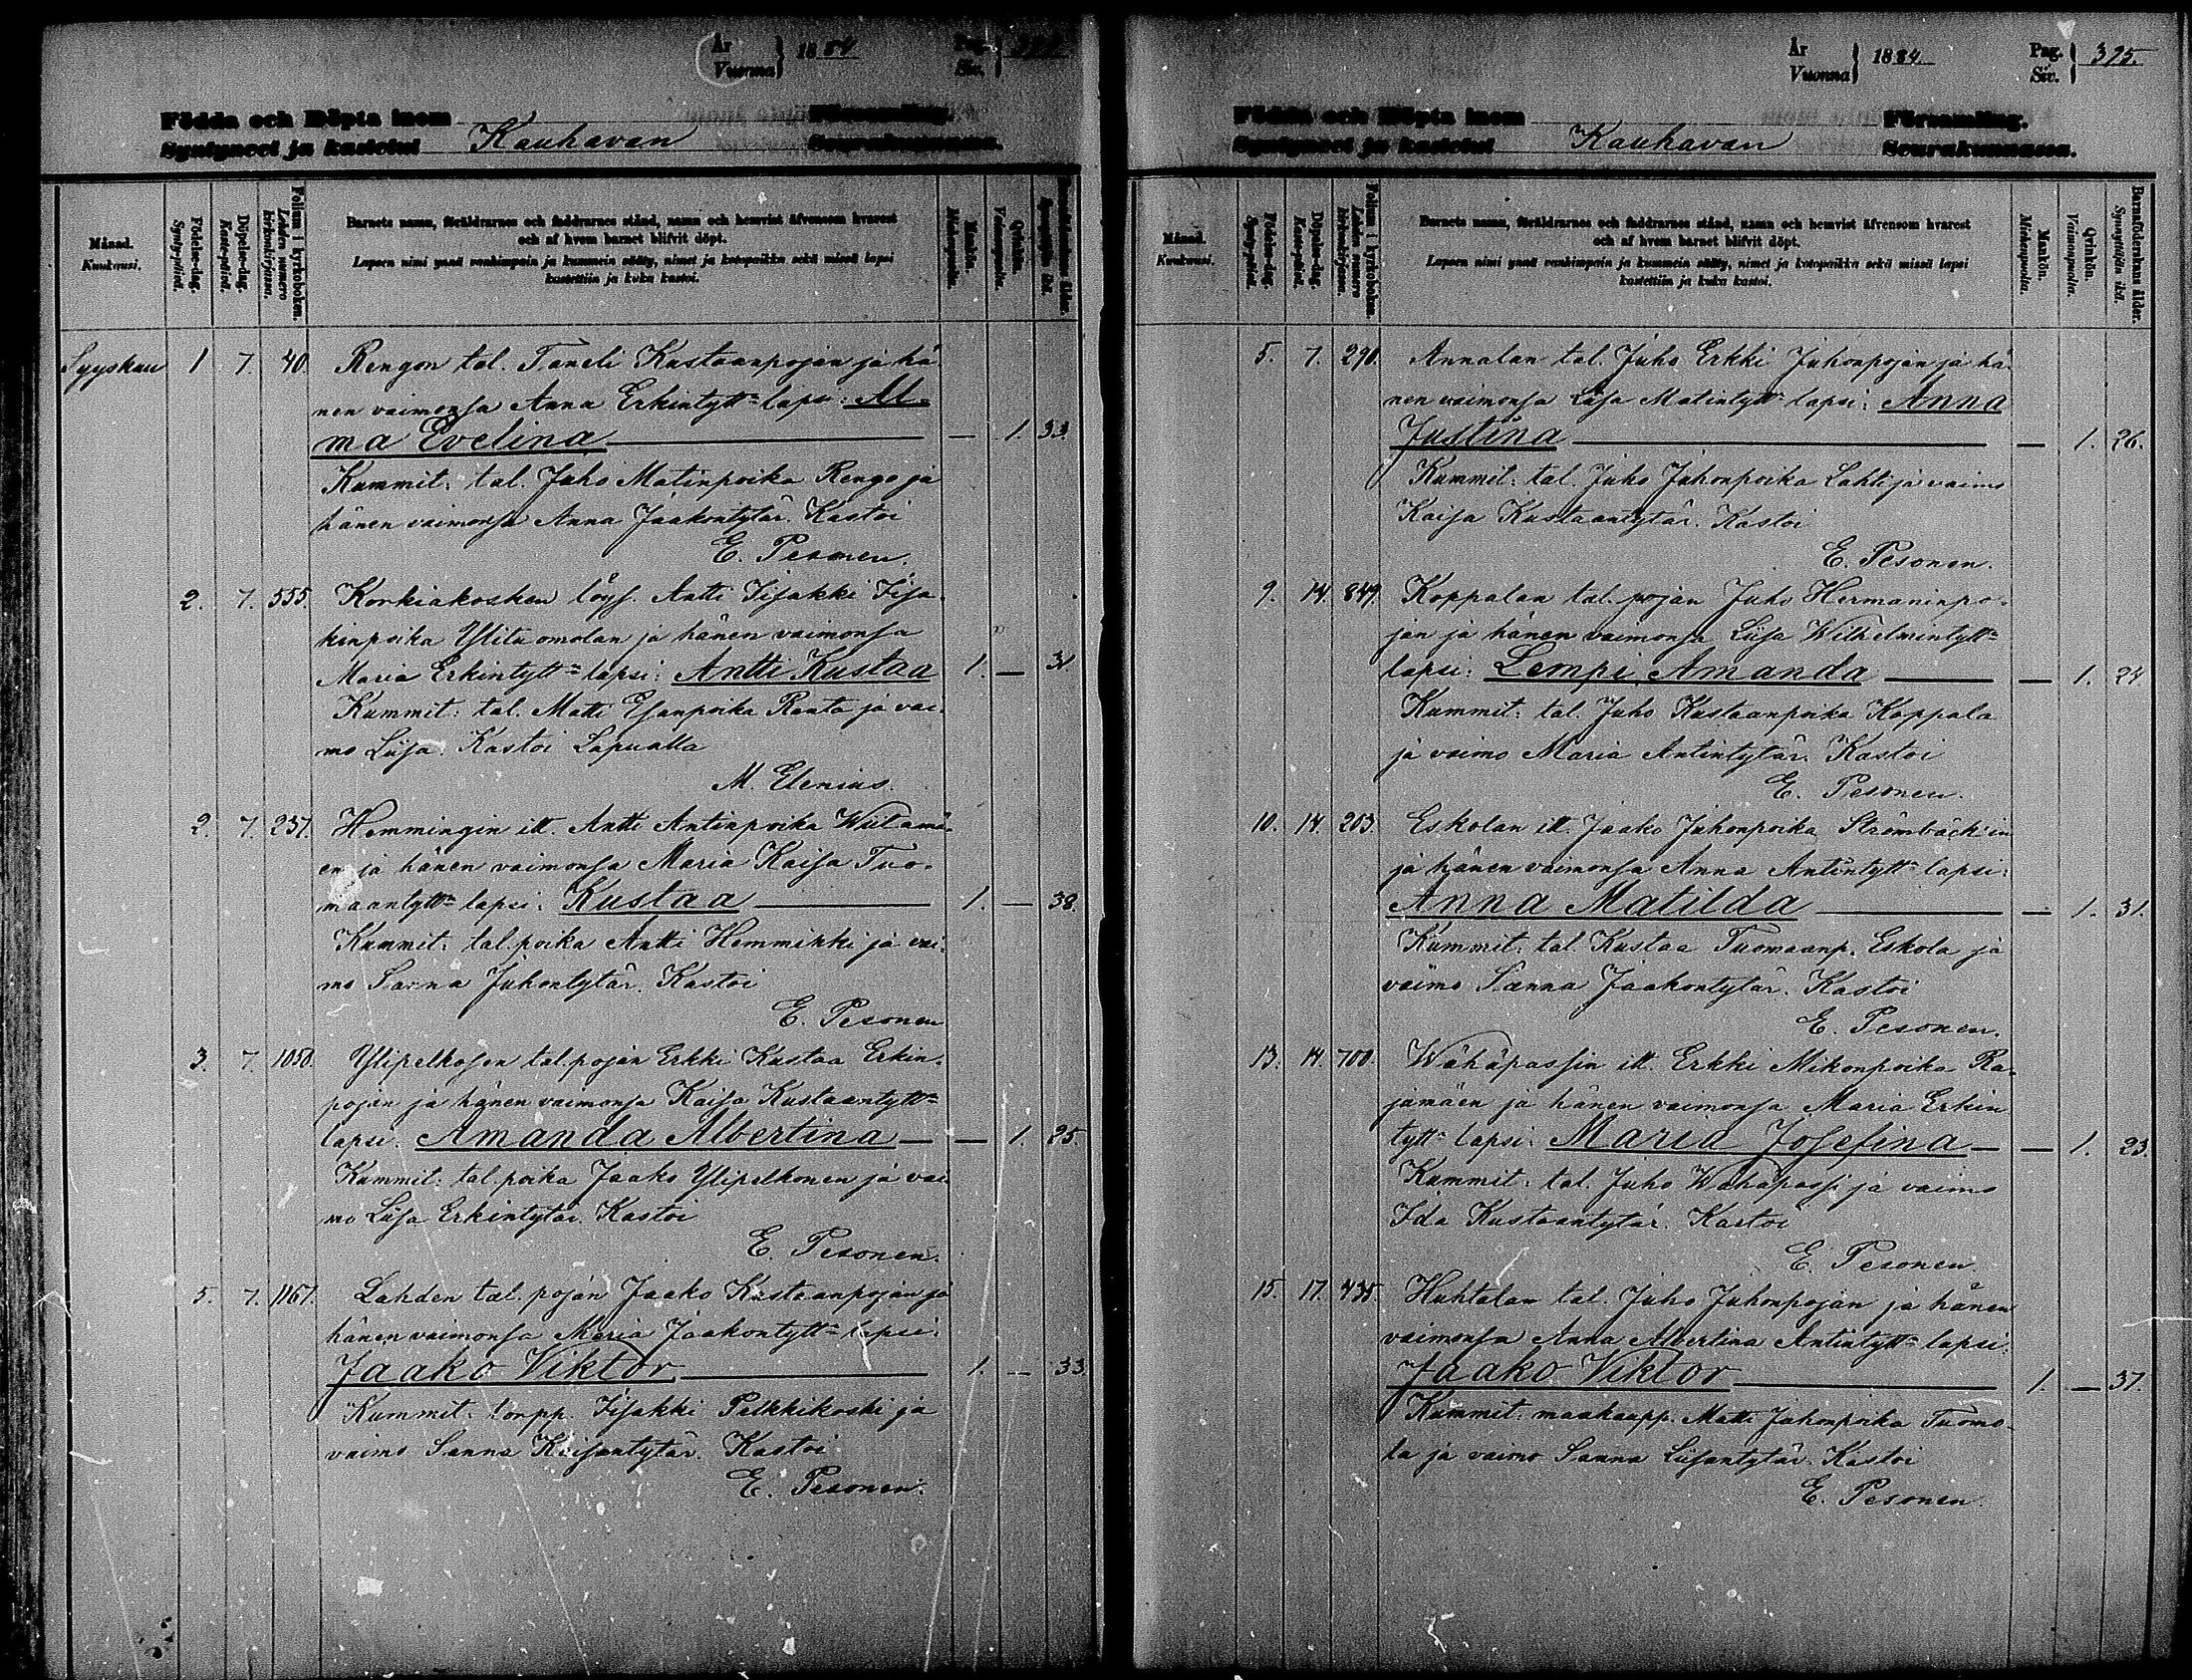 År
Vuonna
1884
Pag.
Siv.
Födda och Döpta inom
Församling.
Syntyneet ja kastetut Kauhavan Seurakunnassa.
Månad.
Kuukausi.
Födelse-dag.
Syntymä-päivä.
Döpelse-dag.
Kaste-päivä.
Folium i kyrkoboken.
Lehden numero
kirkonkirjassa.
Barnets namn, föräldrarnes och faddrarnes stånd, namn och hemvist äfvensom hvarest
och af hvem barnet blifvit döpt.
Lapsen nimi ynnä vanhimpain ja kummein sääty, nimet ja kotopaikka sekä missä lapsi
kastettiin ja kuka kastoi.
Mankön.
Miehenpuolia.
Qvinkön.
Vaimonpuolia.
Syyskuu 1 7. 40. Rengon tal. Taneli Kustaanpojan ja hä-
nen vaimonsa Anna Erkintytt= lapsi: Al-
ma Evelina — 1. 33.
Kummit: tal. Juho Matinpoika Rengo ja
hänen vaimonsa Anna Jaakontytär. Kastoi
E. Pesonen.
2. 7. 555. Korkiakosken löys. Antti Iisakki Iisa-
kinpoika Ylituomolan ja hänen vaimonsa
Maria Erkintytt= lapsi: Antti Kustaa 1. — 31.
Kummit: tal. Matti Esanpoika Ranta ja vai-
mo Liisa. Kastoi Lapualla
M. Elenius.
2. 7. 237. Hemmingin itt. Antti Antinpoika Wiitamä-
en ja hänen vaimonsa Maria Kaisa Tuo-
maantytt= lapsi: Kustaa 1. — 38.
Kummit: tal. poika Antti Hemminki ja vai-
mo Sanna Juhontytär. Kastoi
E. Pesonen
3. 7. 1050. Ylipelkosen tal. pojan Erkki Kustaa Erkin-
pojan ja hänen vaimonsa Kaisa Kustaantytt=
lapsi: Amanda Albertina — 1. 25.
Kummit: tal. poika Jaako Ylipelkonen ja vai-
mo Liisa Erkintytär. Kastoi
E. Pesonen.
5. 7. 1167. Lahden tal. pojan Jaako Kustaanpojan ja
hänen vaimonsa Maria Jaakontytt= lapsi:
Jaako Viktor 1. — 33.
Kummit: torpp. Iisakki Pelkkikoski ja
vaimo Sanna Kaisantytär. Kastoi
E. Pesonen.
År
Vuonna
1884.
Pag.
Siv.
395.
Födda och Döpta inom
Församling.
Syntyneet ja kastetut Kauhavan Seurakunnassa.
Månad.
Kuukausi.
Födelse-dag.
Syntymä-päivä.
Döpelse-dag.
Kaste-päivä.
Folium i kyrkoboken.
Lehden numero
kirkonkirjassa.
Barnets namn, föräldrarnes och faddrarnes stånd, namn och hemvist äfvensom hvarest
och af hvem barnet blifvit döpt.
Lapsen nimi ynnä vanhimpain ja kummein sääty, nimet ja kotopaikka sekä missä lapsi
kastettiin ja kuka kastoi.
Mankön.
Miehenpuolia.
Qvinkön.
Vaimonpuolia.
Barnaföderskans ålder.
Synnyttäjän ikä.
5. 7. 290. Annalan tal. Juho Erkki Juhonpojan ja hä-
nen vaimonsa Liisa Matintytt= lapsi: Anna
Justina — 1. 26.
Kummit: tal. Juho Juhonpoika Lahti ja vaimo
Kaisa Kustaantytär. Kastoi
E. Pesonen.
9. 14. 849. Koppalan tal. pojan Juho Hermaninpo-
jan ja hänen vaimonsa Liisa Wilhelmintytt=
lapsi: Lempi Amanda — 1. 24.
Kummit: tal. Juho Kustaanpoika Koppala
ja vaimo Maria Antintytär. Kastoi
E. Pesonen.
10. 14. 203. Eskolan itt. Jaako Juhonpoika Strömbäck'in
ja hänen vaimonsa Anna Antintytt= lapsi:
Anna Matilda — 1. 31.
Kummit: tal. Kustaa Tuomaanp. Eskola ja
vaimo Sanna Jaakontytär. Kastoi
E. Pesonen.
13. 14. 700. Wähäpassin itt. Erkki Mikonpoika Ra-
jamäen ja hänen vaimonsa Maria Erkin
tytt= lapsi: Maria Josefina — 1. 23.
Kummit: tal. Juho Wähäpassi ja vaimo
Ida Kustaantytär. Kastoi
E. Pesonen.
15. 17. 435. Huhtalan tal. Juho Juhonpojan ja hänen
vaimonsa Anna Albertina Antintytt= lapsi:
Jaako Viktor 1. — 37.
Kummit: maakaupp. Matti Juhonpoika Tuomo-
la ja vaimo Sanna Liisantytär. Kastoi
E. Pesonen.